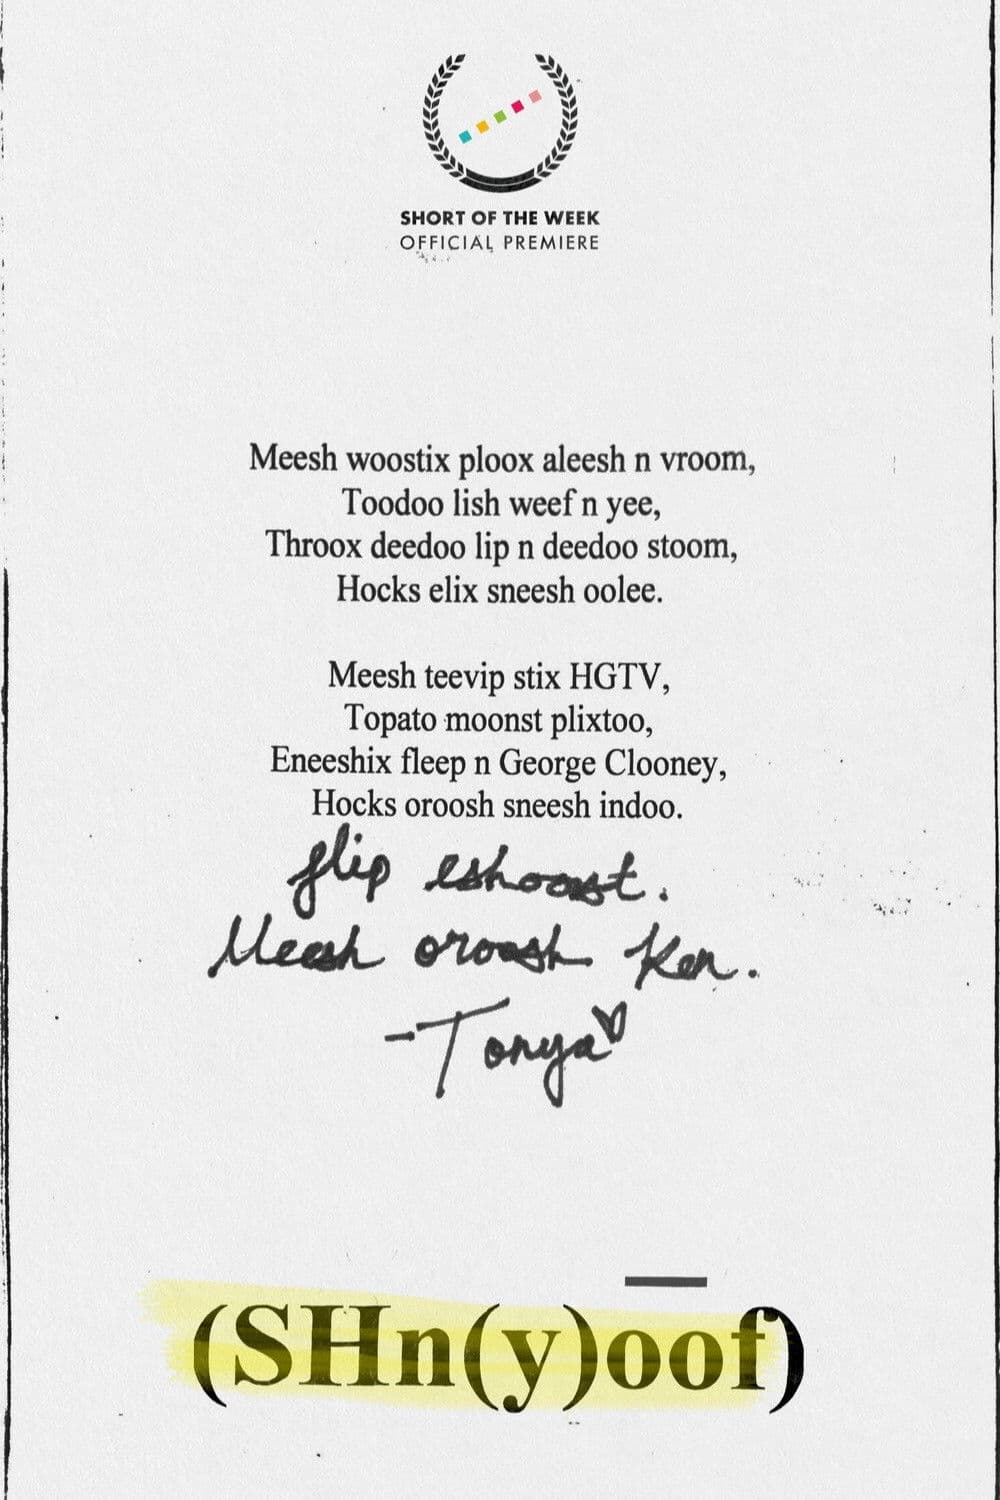 SHORT OF THE WEEK
OFFICIAL PREMIERE
Meesh woostix ploox aleesh n vroom,
Toodoo lish weef n yee,
Throox deedoo lip n deedoo stoom,
Hocks elix sneesh oolee.
Meesh teevip stix HGTV,
Topato moonst plixtoo,
Eneeshix fleep n George Clooney,
Hocks oroosh sneesh indoo.
flip eshoost.
Meesh oroosh Ken.
-Tonya
(SHn(y)o͞of)